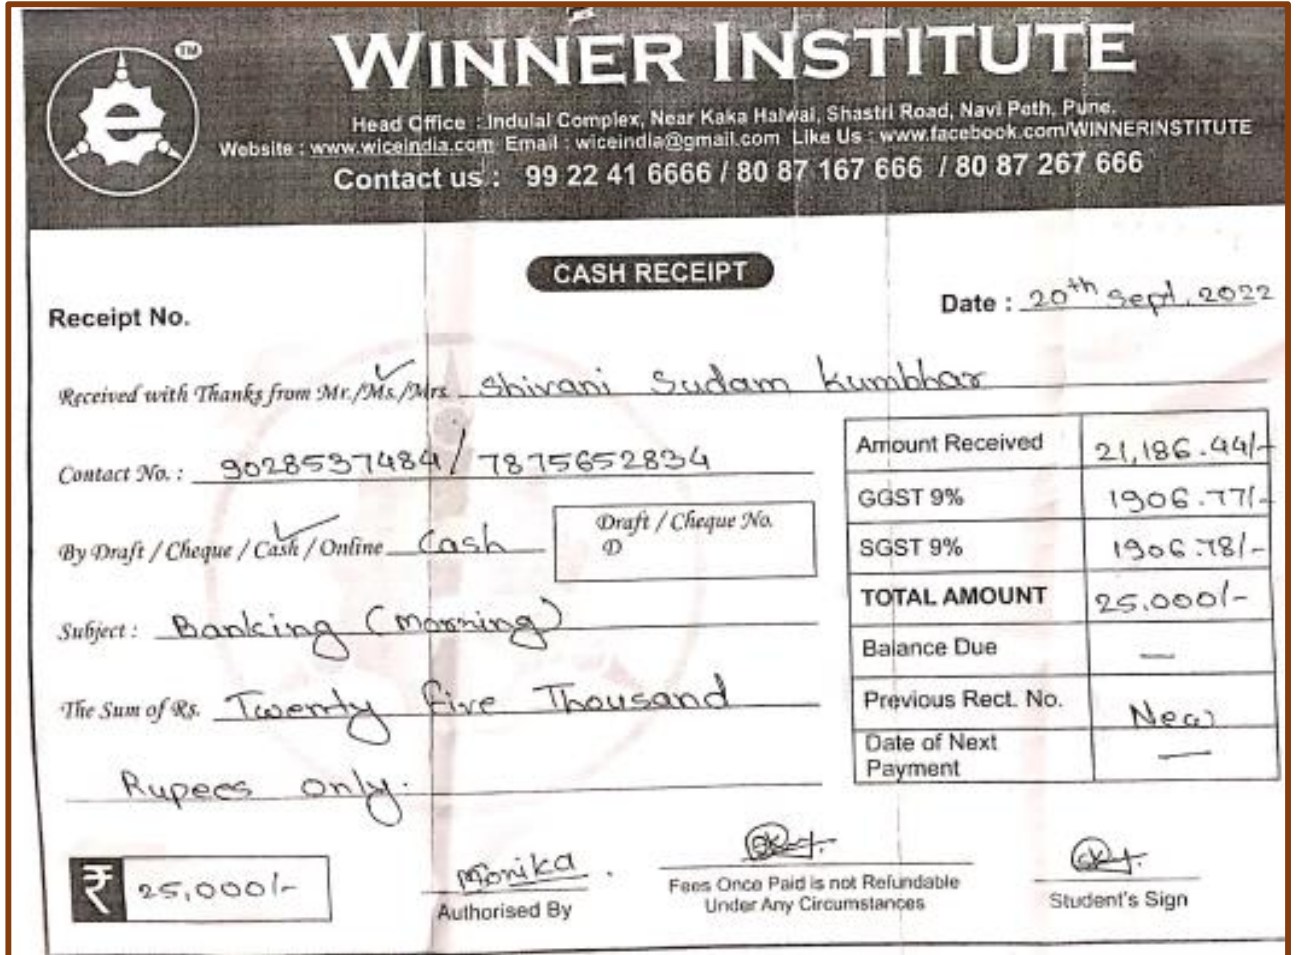 TM
e
WINNER INSTITUTE
Head Office : Indulal Complex, Near Kaka Halwai, Shastri Road, Navi Peth, Pune.
Website : www.wiceindia.com Email : wiceindia@gmail.com Like Us : www.facebook.com/WINNERINSTITUTE
Contact us : 99 22 41 6666 / 80 87 167 666 / 80 87 267 666
CASH RECEIPT
Receipt No.
Date : 20th Sept. 2022
Received with Thanks from Mr./Ms./Mrs. Shivani Sudam Kumbhar
Contact No. : 9028537484 / 7875652834
By Draft / Cheque / Cash / Online Cash
Draft / Cheque No.
D
Subject : Banking (Morning)
The Sum of Rs. Twenty Five Thousand
Rupees only.
Amount Received 21,186.44/-
GGST 9% 1906.77/-
SGST 9% 1906.78/-
TOTAL AMOUNT 25,000/-
Balance Due —
Previous Rect. No. New
Date of Next
Payment —
₹ 25,000/-
Monika
Authorised By
Fees Once Paid is not Refundable
Under Any Circumstances
Student's Sign